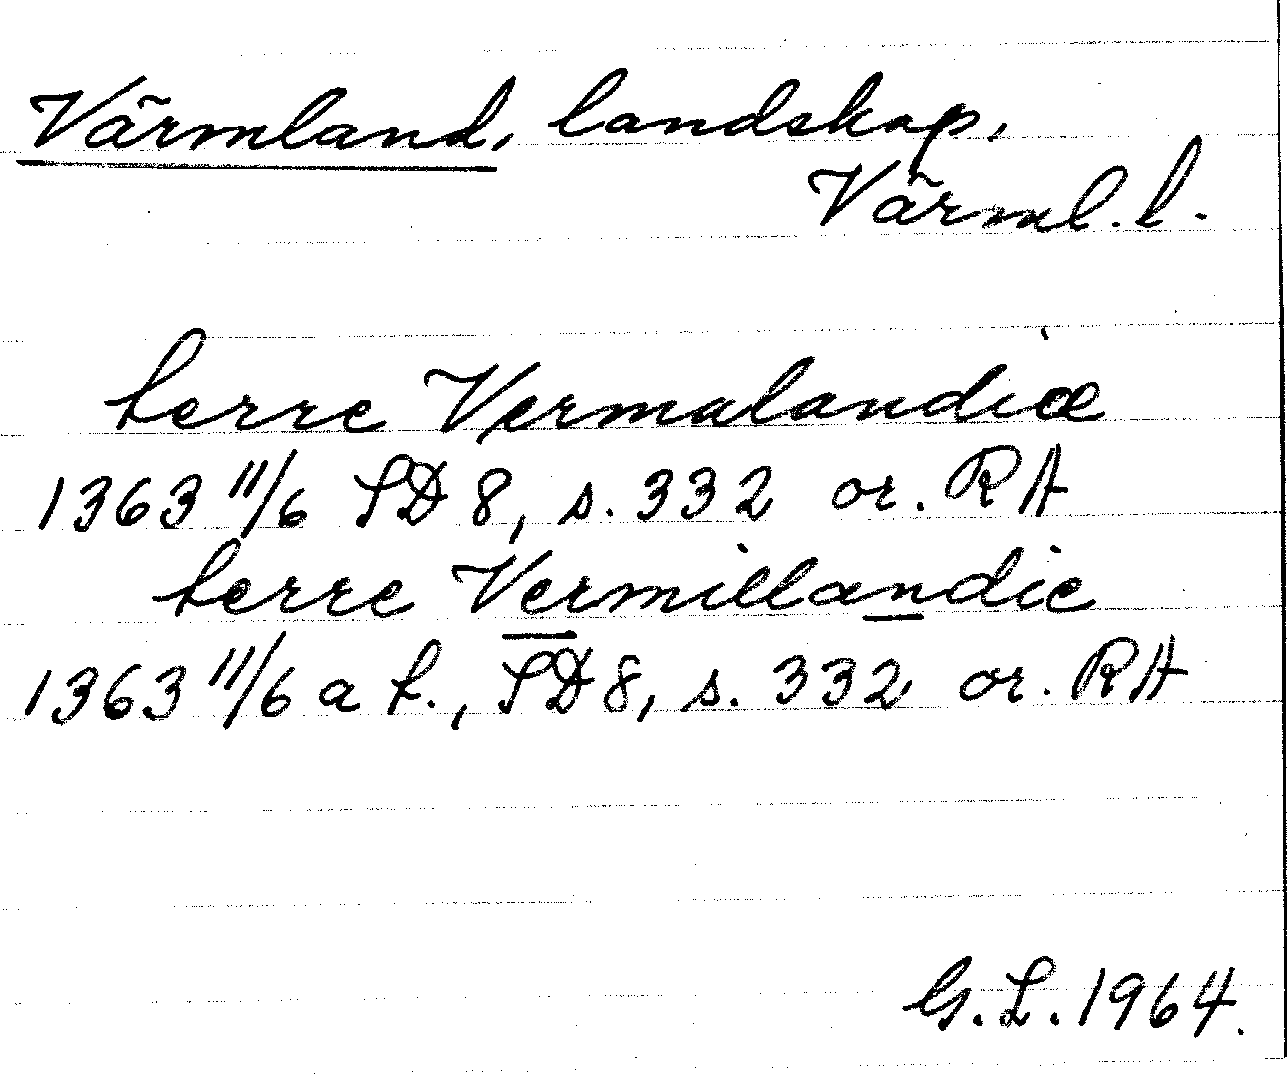 Värmland, landskap,
Värml. l.
terre Vermalandiæ
1363 11/6 SD 8, s. 332 or. RA
terre Vermillandie
1363 11/6 a t., SD 8, s. 332 or. RA
G. L. 1964.